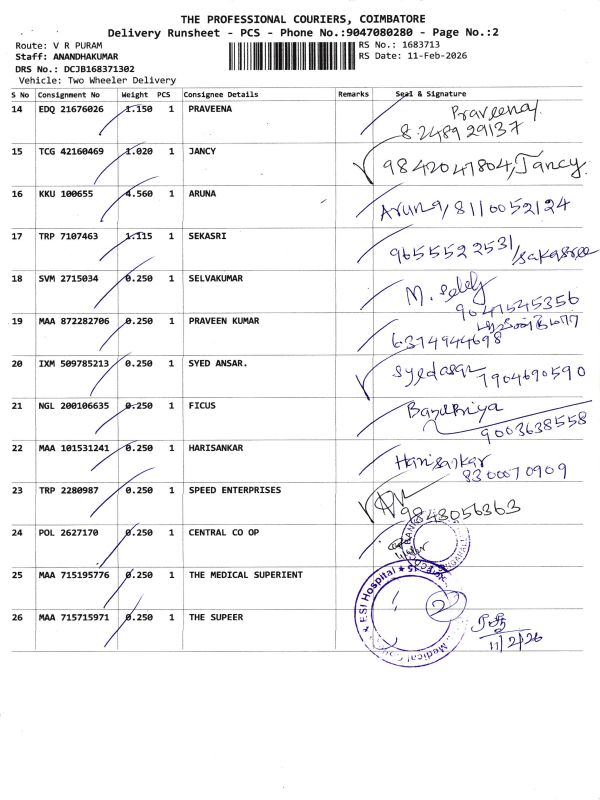 THE PROFESSIONAL COURIERS, COIMBATORE
Delivery Runsheet - PCS - Phone No.:9047080280 - Page No.:2
Route: V R PURAM
RS No.: 1683713
Staff: ANANDHAKUMAR
RS Date: 11-Feb-2026
DRS No.: DCJB168371302
Vehicle: Two Wheeler Delivery
S No Consignment No Weight PCS Consignee Details Remarks Seal & Signature
14 EDQ 21676026 1.150 1 PRAVEENA Praveena
8248929137
15 TCG 42160469 1.020 1 JANCY 9842047804, Jancy.
16 KKU 100655 4.560 1 ARUNA Aruna, 8110052124
17 TRP 7107463 1.115 1 SEKASRI 9655522531
/sakasree
18 SVM 2715034 0.250 1 SELVAKUMAR M.
9047545356
19 MAA 872282706 0.250 1 PRAVEEN KUMAR
6374944698
20 IXM 509785213 0.250 1 SYED ANSAR. 7904690590
21 NGL 200106635 0.250 1 FICUS
9003638558
22 MAA 101531241 0.250 1 HARISANKAR Harisankar
8300070909
23 TRP 2280987 0.250 1 SPEED ENTERPRISES
9843056363
24 POL 2627170 0.250 1 CENTRAL CO OP
25 MAA 715195776 0.250 1 THE MEDICAL SUPERIENT
26 MAA 715715971 0.250 1 THE SUPEER
ESI Hospital
Medical
2
11/2/26